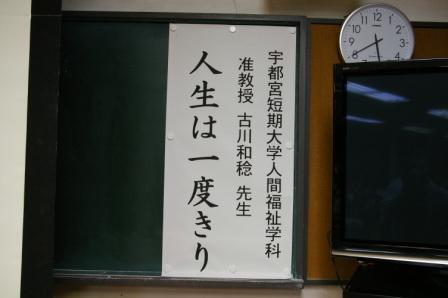 宇都宮短期大学人間福祉学科
准教授 古川和稔 先生
人生は一度きり
12
1
2
3
4
5
6
7
8
9
10
11